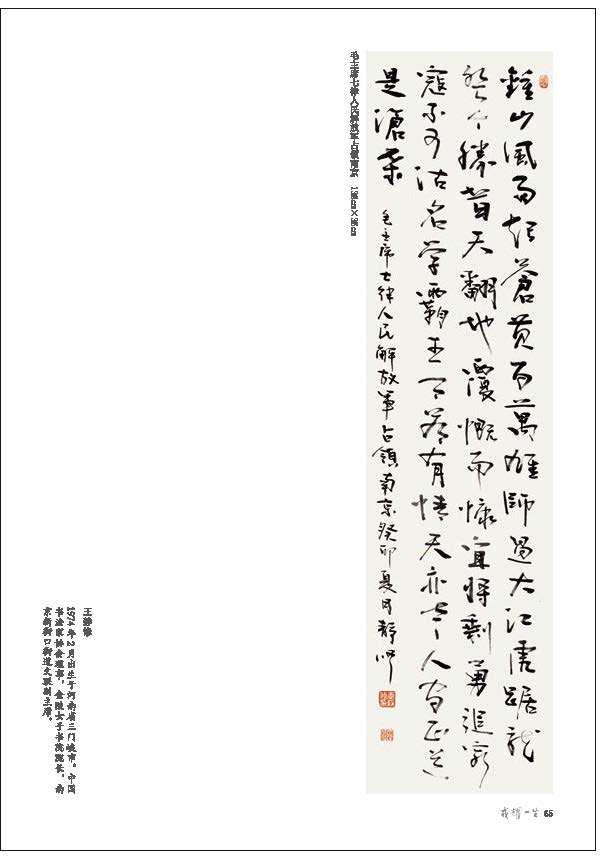 鍾山風雨起蒼黄百萬雄師過大江虎踞龍
盤今勝昔天翻地覆慨而慷宜將剩勇追窮
寇不可沽名學霸王天若有情天亦老人间正道
是滄桑
毛主席七律人民解放軍占領南京癸卯夏月静
毛主席七律人民解放军占领南京
王静
1974年2月出生于河南省三门峡市。中国
书法家协会理事，金陵女子书院院长，南
京新街口街道文联副主席。
一生 65